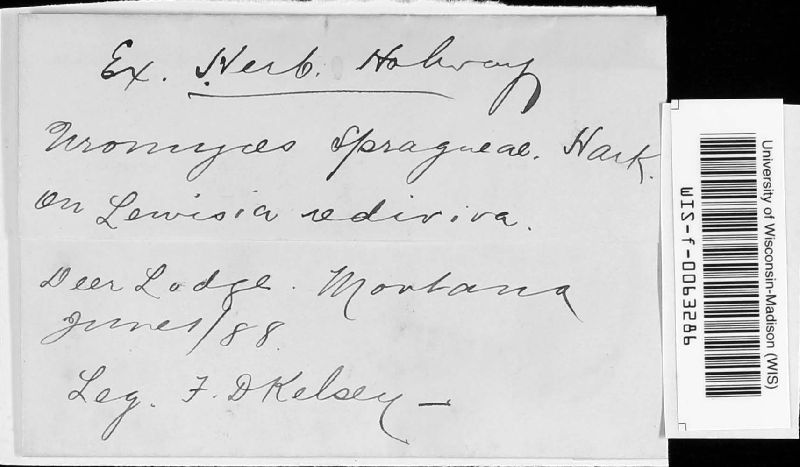 Ex. Herb. Holway
Uromyces Spragueae. Hark.
on Lewisia rediviva.
Deer Lodge. Montana
June 1/88
Leg. F. D Kelsey —
University of Wisconsin-Madison (WIS)
WIS-f-0063286